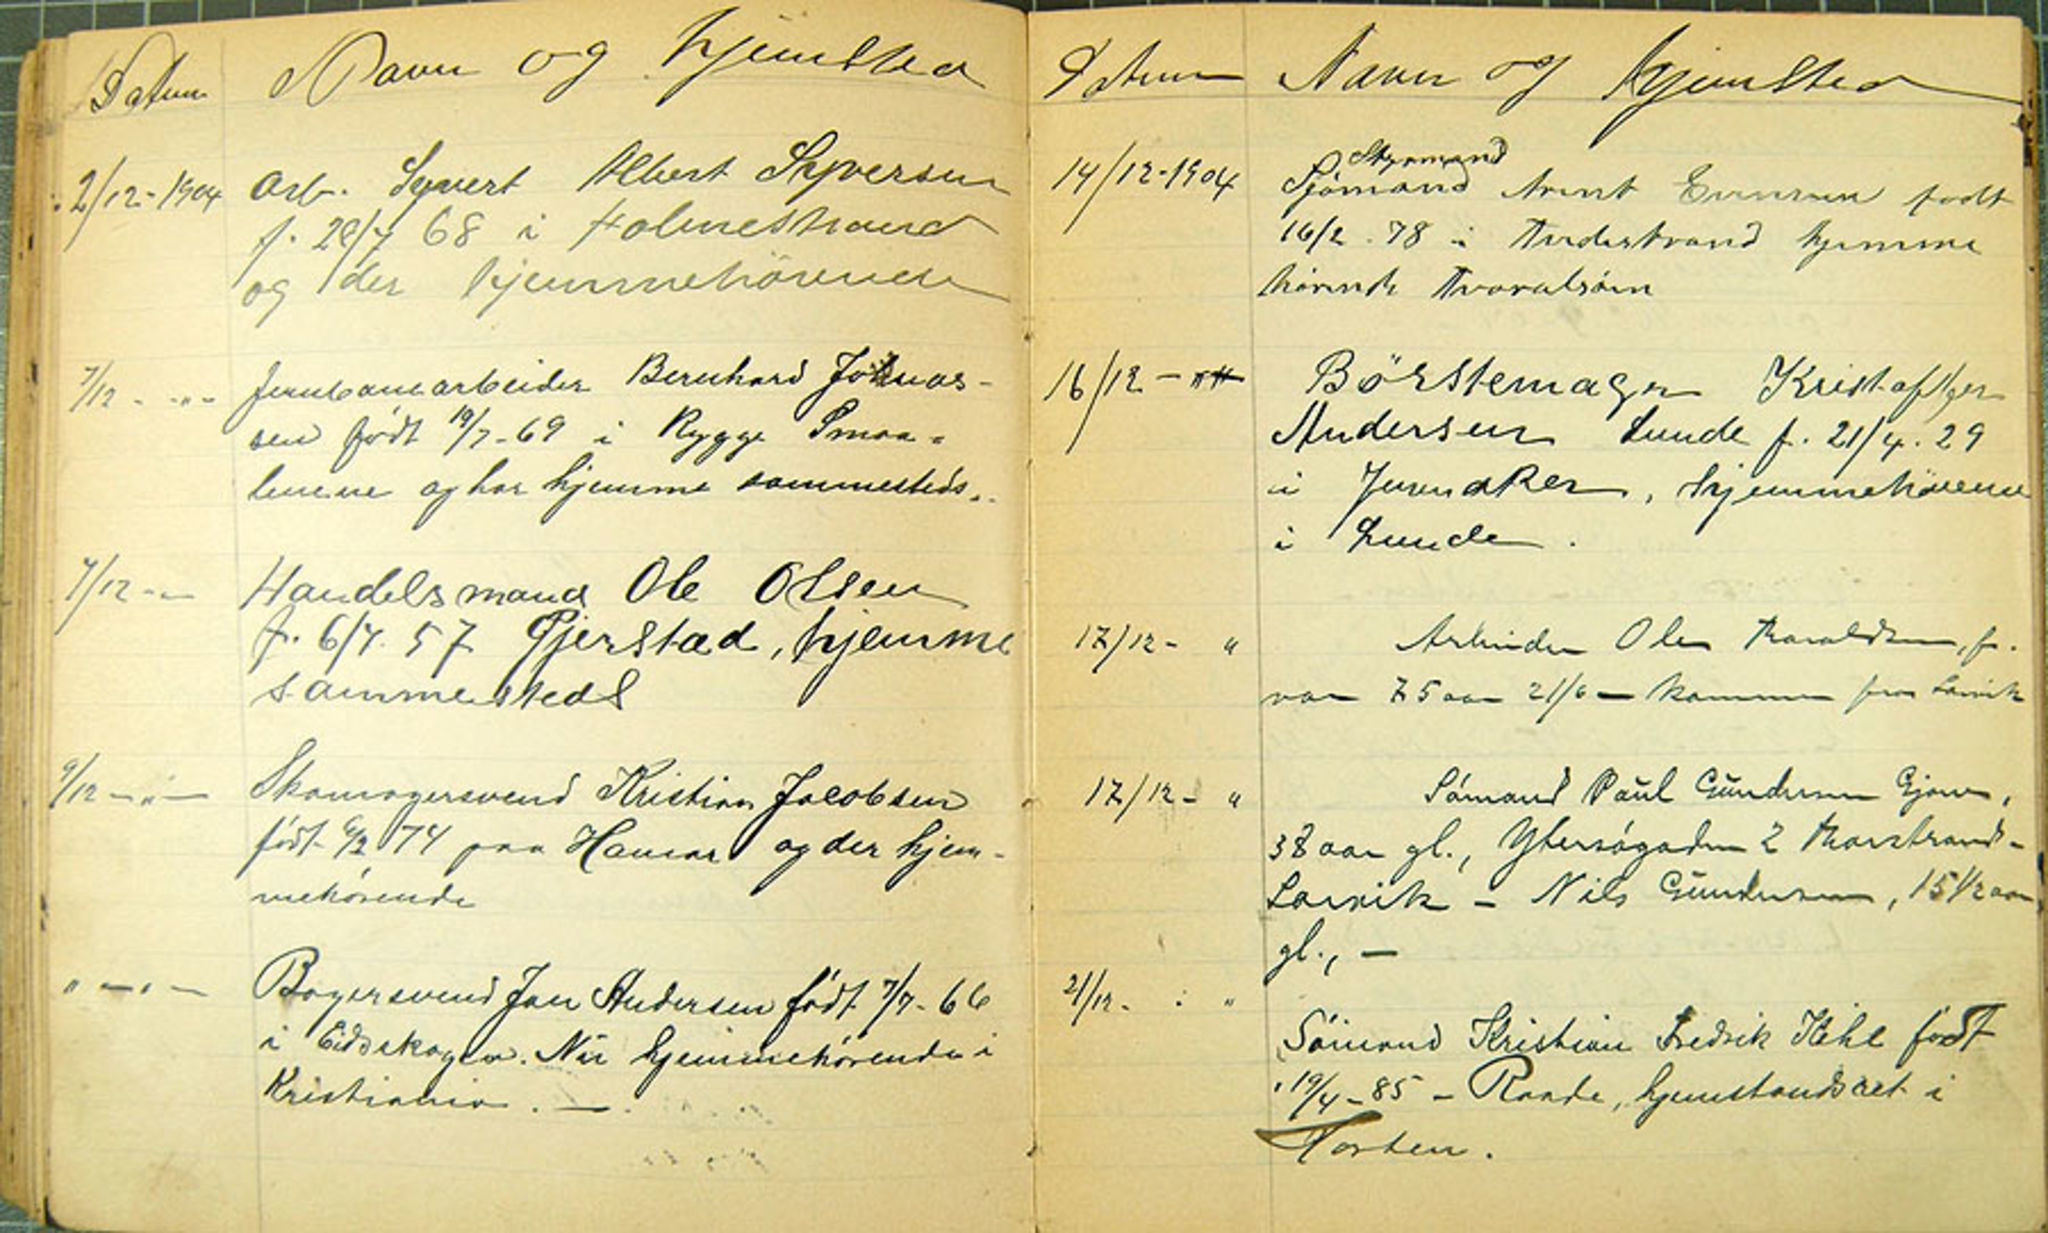 Datum Navn og hjemsted
2/12-1904 Arb. Syvert Albert Syversen
f. 28/7 68 i Holmestrand
og der hjemmehörende
7/12 - -"- Jernbanearbeider Bernhard Johnas-
sen født 19/7-69 i Rygge Smaa-
lenene og har hjemme sammesteds.
7/12 - - Handelsmand Ole Olsen
f. 6/7. 57 Gjerstad, hjemme
sammesteds
9/12 -"- Skomagersvend Kristian Jacobsen
født 6/2 74 paa Hamar og der hjem-
mehörende
" -"- Bagersvend Jan Andersen født 7/7-66
i Eidskogen. Nu hjemmehørende i
Kristiania. —
Datum Navn og hjemsted
14/12-1904 Styrmand
Sjømand födt
16/2.78 i hjemme
hörende
16/12 - " Börstemager Kristoffer
Andersen Lunde f. 21/4.29
i , hjemmehörende
i Lunde.
17/12- " Arbeider Ole Haraldsen, f.
var 75 aar 21/6 — kommer fra Larvik
17/12- " Sömand Paul Gundersen ,
38 aar gl., 2 Thorstrand-
Larvik - Nils Gundersen, 15 1/2 aar
gl., —
21/12- " Sömand Kristian Fredrik Kihl født
19/4-85 - Raade, hjemstandsret i
Horten.